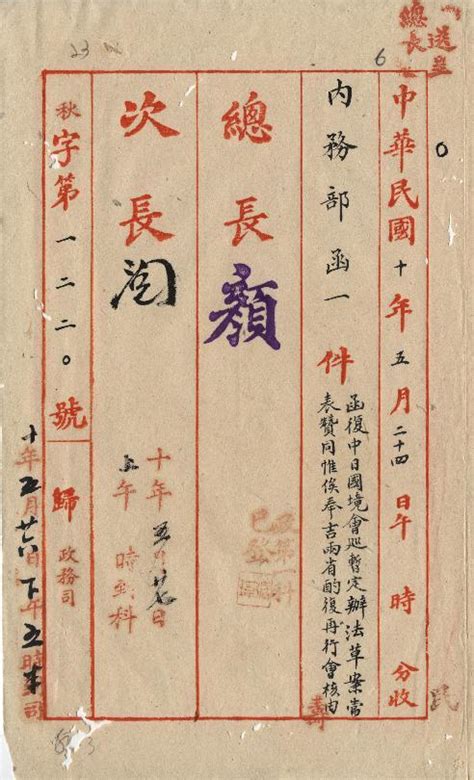 送呈
總長
6
23
中華民國十年五月二十四日午時分收
内務部函一件
函復中日國境會巡暫定辦法草案當
表贊同惟俟奉吉兩省酌復再行會核由
總長顏
次長
十年五月廿七日
上午時到科
秋字第一二二〇號歸政務司
十年五月廿六日下午五時半司